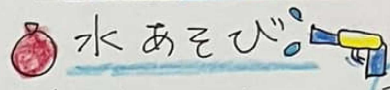 水あそび